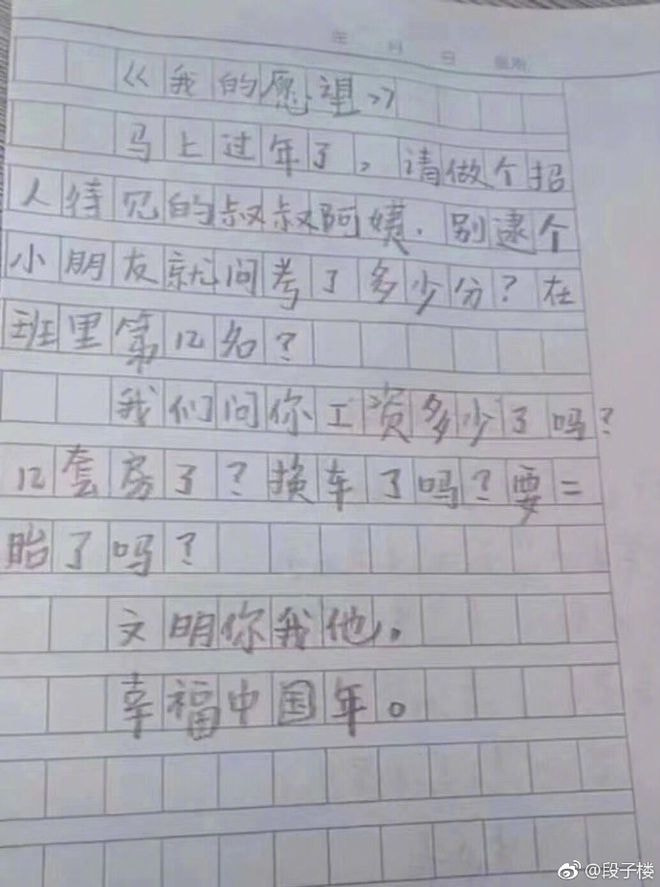 年 月 日 星期
《我的愿望》
马上过年了，请做个招
人待见的叔叔阿姨．别逮个
小朋友就问考了多少分？在
班里第几名？
我们问你工资多少了吗？
几套房了？换车了吗？要二
胎了吗？
文明你我他。
幸福中国年。
@段子楼